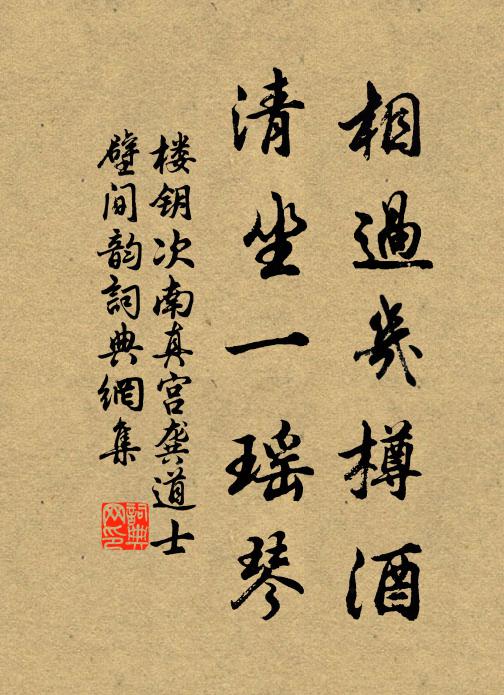 相過幾樽酒
清坐一瑶琴
楼钥次南真宫龚道士
壁间韵詞典網集
詞典网印